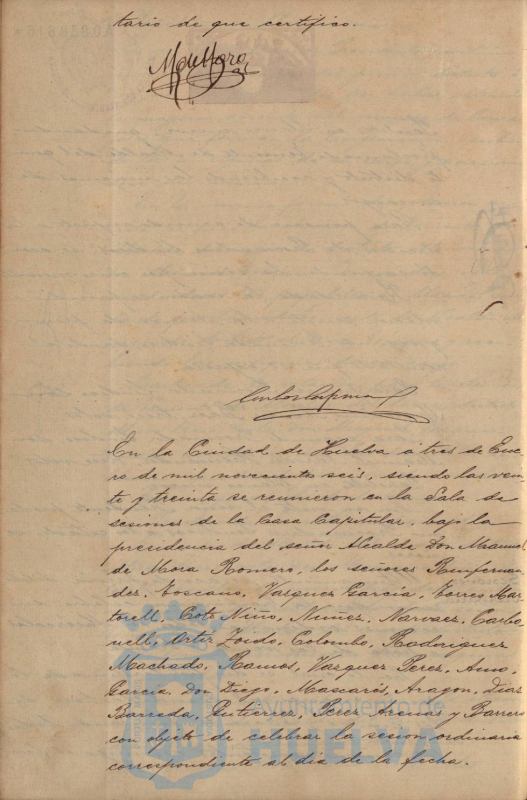 tario de que certifico.
M de Mora
Carlos
En la Ciudad de Huelva a tres de Ene
ro de mil novecientos seis, siendo las vein
te y treinta se reunieron en la Sala de
sesiones de la Casa Capitular, bajo la
presidencia del señor Alcalde Don Manuel
de Mora Romero, los señores
dez, Toscano, Vazquez García, Torres Mar
torell, Coto Niño, Nuñez, Narvaez, Carbo
nell, Ortiz Toido, Colombo, Rodriguez
Machado, Ramos, Vazquez Perez,
García Don Diego, Mascarós, Aragon, Díaz
Barreda, Gutierrez, Perez Arenas y Barrero
con objeto de celebrar la sesion ordinaria
correspondiente al dia de la fecha.
Ayuntamiento de
HUELVA